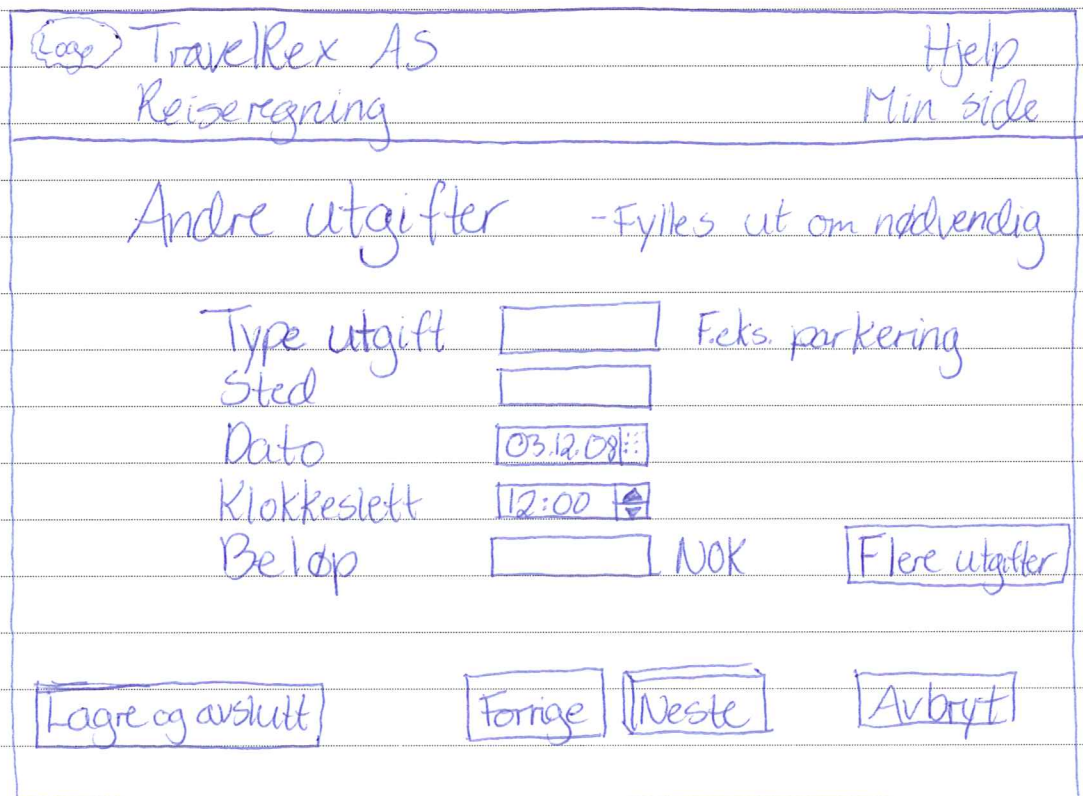 Logo TravelRex AS Hjelp
Reiseregning Min side
Andre utgifter - Fylles ut om nødvendig
Type utgift F.eks. parkering
Sted
Dato 03.12.08
Klokkeslett 12:00
Beløp NOK Flere utgifter
Lagre og avslutt Forrige Neste Avbryt